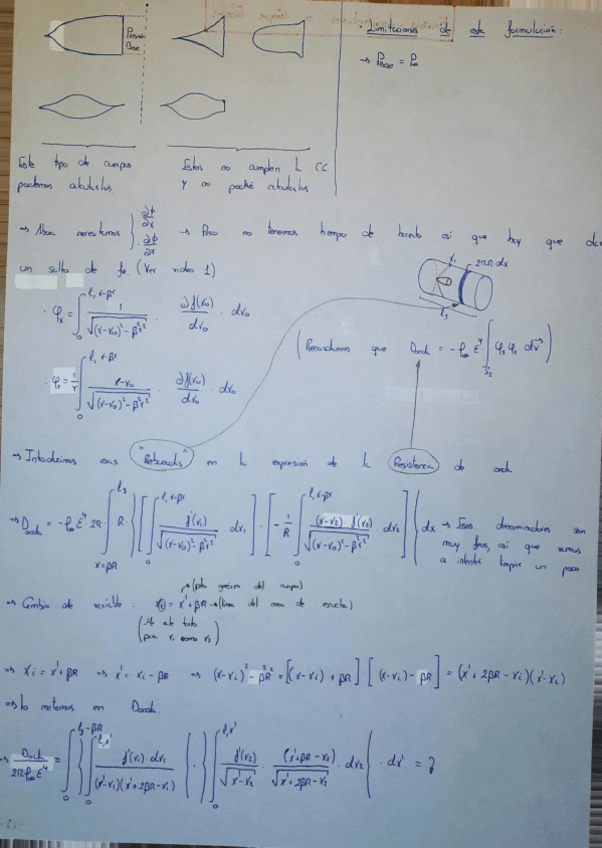 · Limitaciones de esta formulación:
→ P_BASE = P_∞
Este tipo de cuerpos
podemos calcularlos
Estos no cumplen L CC
y no podré calcularlos
→ Ahora necesitamos } · ∂ϕ/∂x · ∂ϕ/∂r → Pero no tenemos tiempo de hacerlo así que hay que dar
un salto de fe. (Ver video 1)
· φx = ∫_0^{l, x-βr} 1/√((x-x₀)²-β²r²) · ∂f(x₀)/dx₀ · dx₀
(Recordamos que Donda = -ρ∞ ε⁴ ∫_{S₃} φx φr ds)
· φr = 1/r ∫_0^{l, x-βr} x-x₀/√((x-x₀)²-β²r²) · ∂f(x₀)/dx₀ · dx₀
→ Introducimos esas "Retornadas" en la expresión de la Resistencia de onda
→ Donda = -ρ∞ ε⁴ 2π ∫_{x=βR}^{l₃} R · { [ ∫_0^{l, x-βr} f'(x₁)/√((x-x₀)²-β²r²) dx₁ ] · [ -1/R ∫_0^{l, x-βr} (x-x₂) f'(x₂)/√((x-x₀)²-β²r²) dx₂ ] } dx → Esos denominadores son
muy feos, así que vamos
a intentar limpiar un poco
→ Cambio de variable: x = x' + βR → (línea del cono de escucha)
(Me da tanto
para x₁ como x₂)
→ Xi = x' + βR → x' = xi - βR → (x-xi)² - β²R² = [(x-xi) + βR] [(x-xi) - βR] = (x' + 2βR - xi)(x'-xi)
→ lo metemos en Donda.
→ Donda/2πρ∞ε⁴ = ∫_0^{l₃-βR} { ∫_0^{l,x'} f'(x₁) dx₁/(x'-x₁)(x'+2βR-x₁) } · { ∫_0^{l,x'} f'(x₂)/√(x'-x₂) · (x'+βR-x₂)/√(x'+2βR-x₂) dx₂ } · dx' =